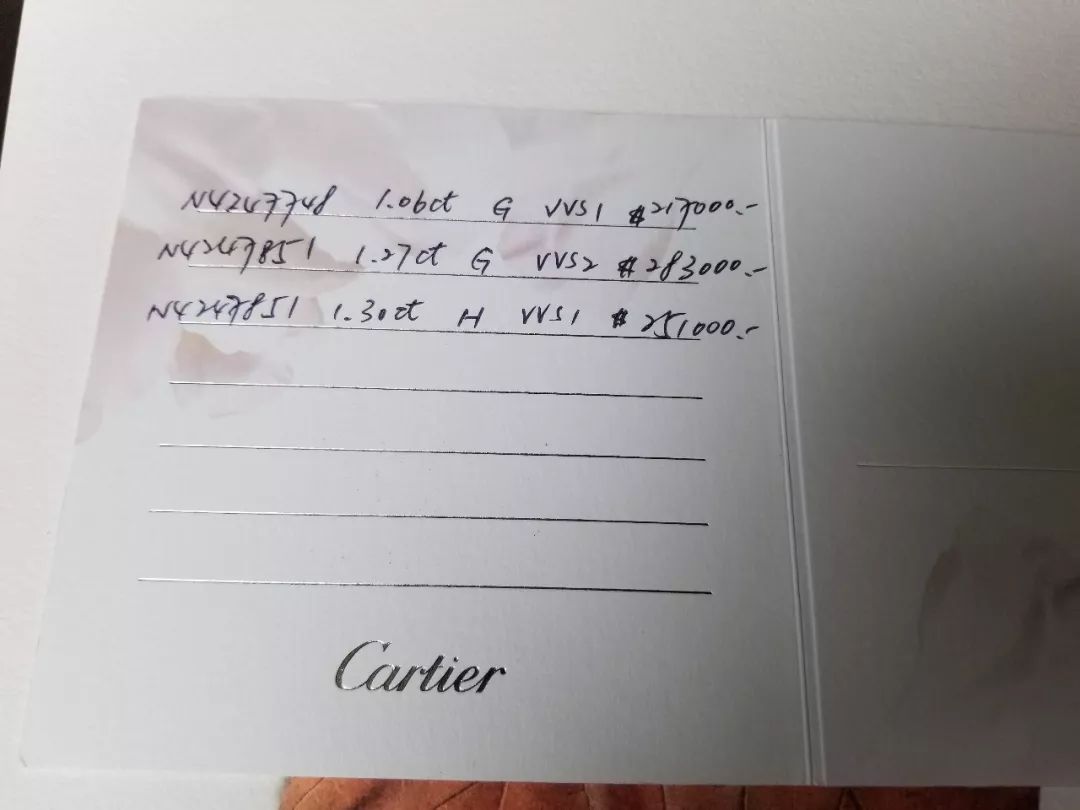 N4247748 1.06ct G VVS1 $217000.-
N4247851 1.27ct G VVS2 $283000.-
N4247851 1.30ct H VVS1 $251000.-
Cartier